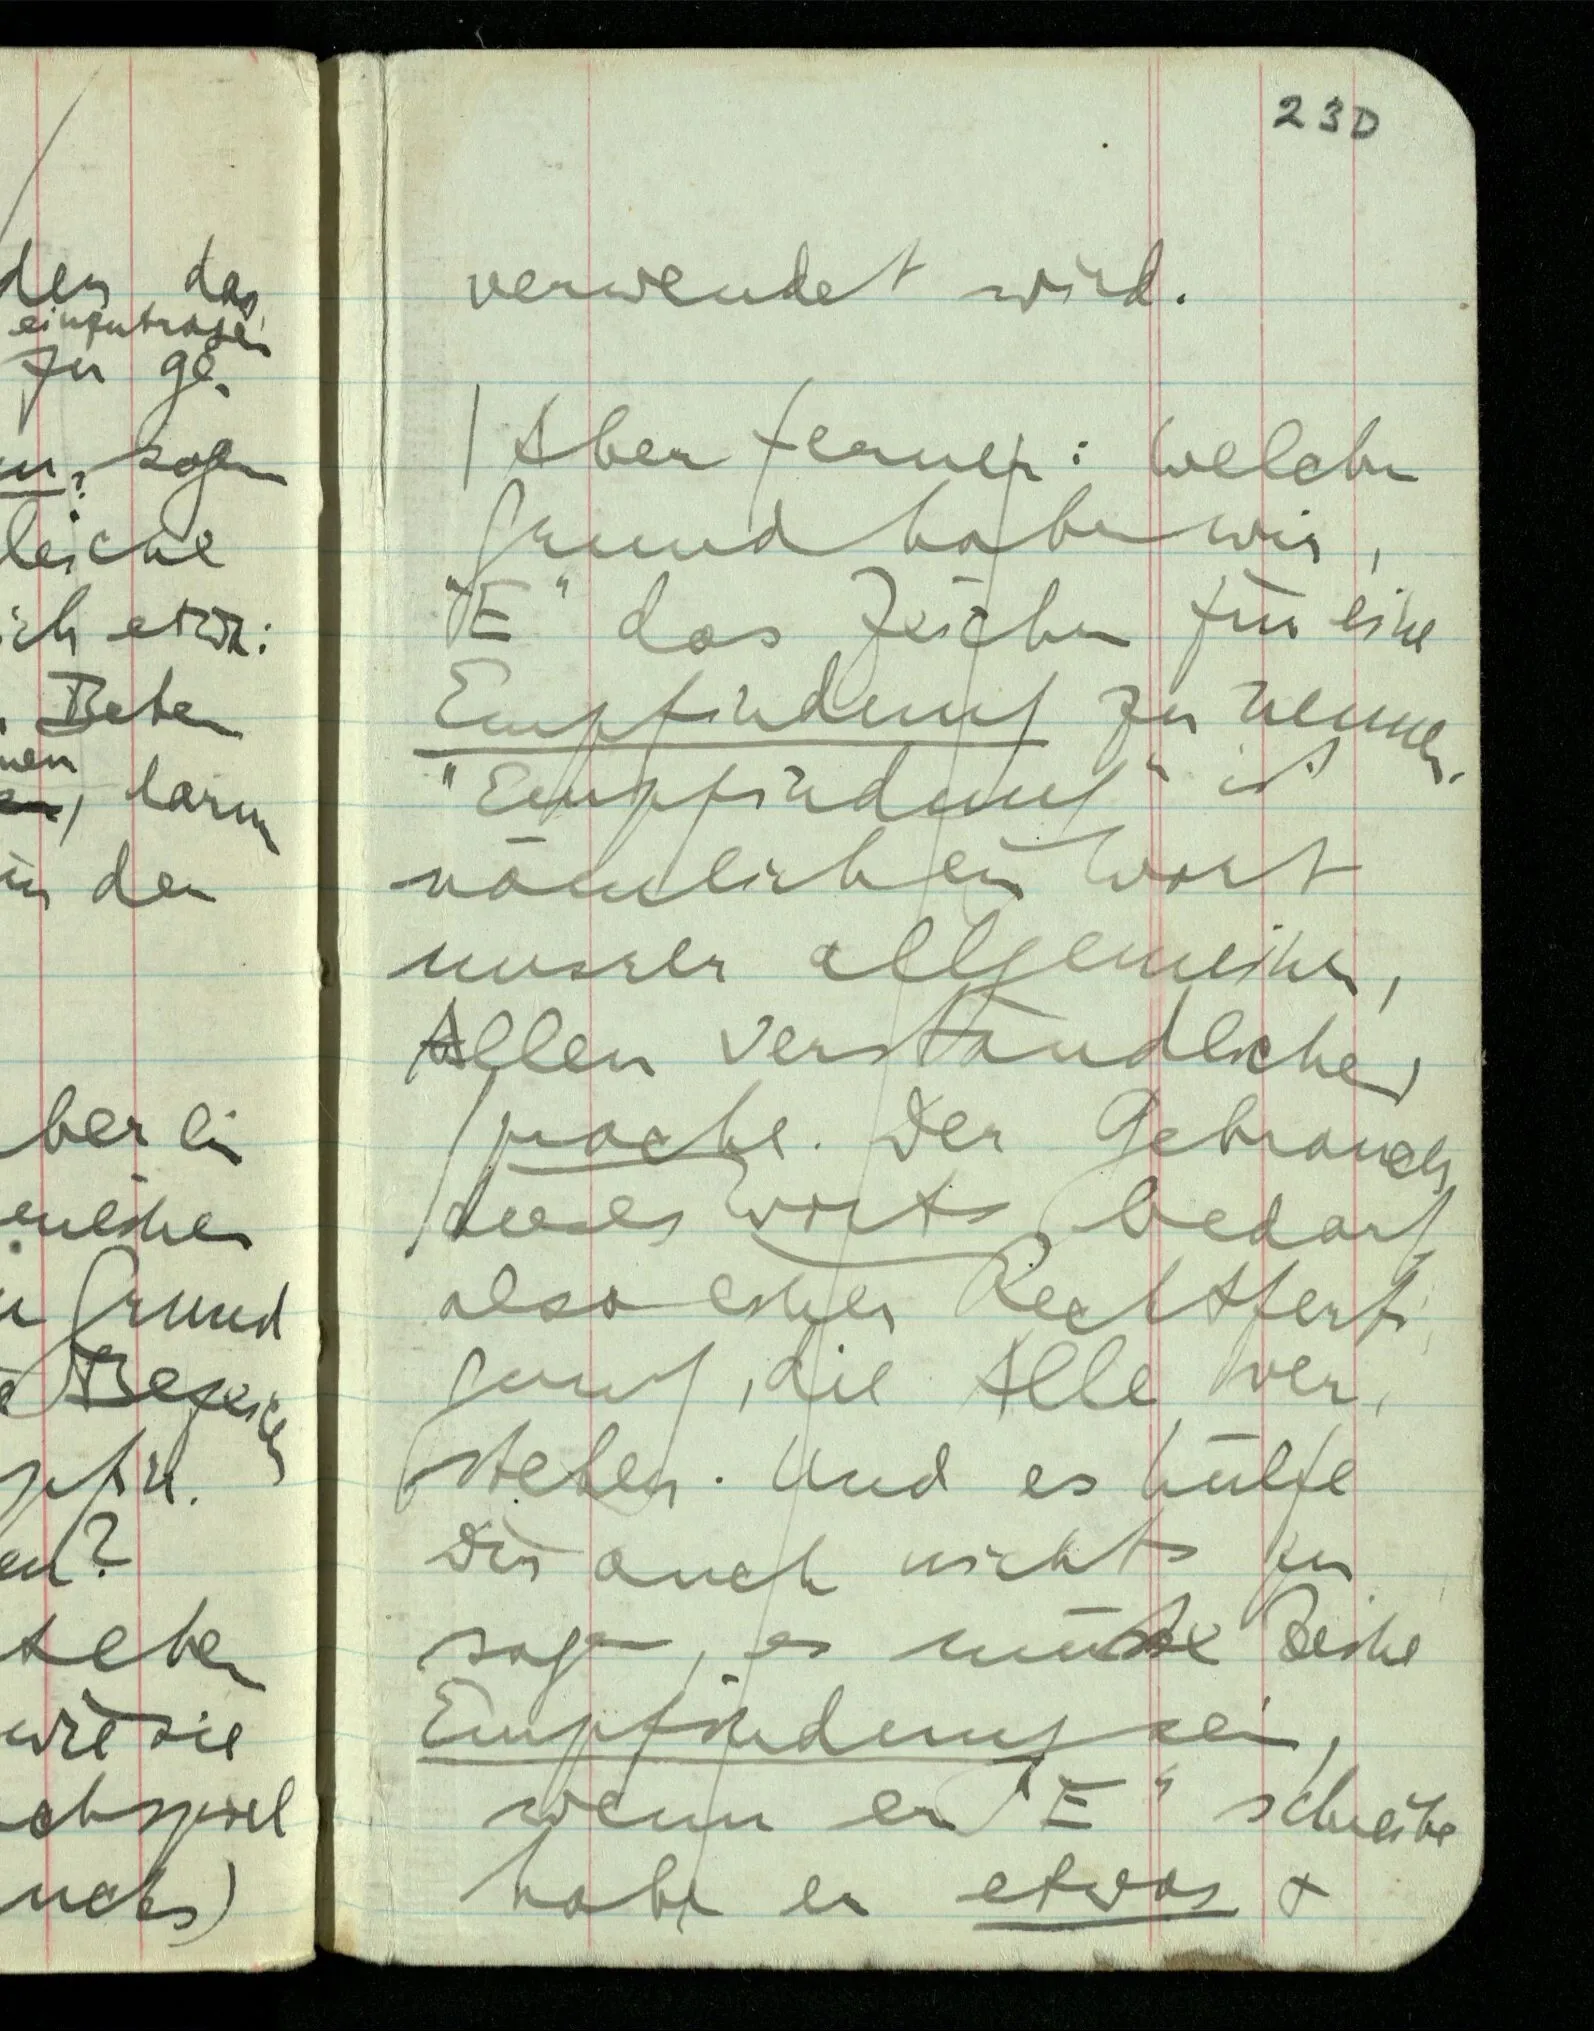 den das
einzutragen
zu ge-
sagen
leiche
ich etwa:
Beten
, darum
in den
ber ein
Grund
Bezeich
wie sie
23D
verwendet wird.
| Aber ferner: Welchen
Grund haben wir,
"E" das Zeichen für eine
Empfindung zu nennen.
"Empfindung" ist
nämlich ein Wort
unsrer allgemeinen,
Allen verständlichen,
Sprache. Der Gebrauch
dieses Worts bedarf
also einer Rechtferti-
gung, die Alle ver-
stehen. Und es hülfe
Dir auch nichts zu
sagen, es müsse keine
Empfindung sein,
wenn er "E" schreibe
habe er etwas &